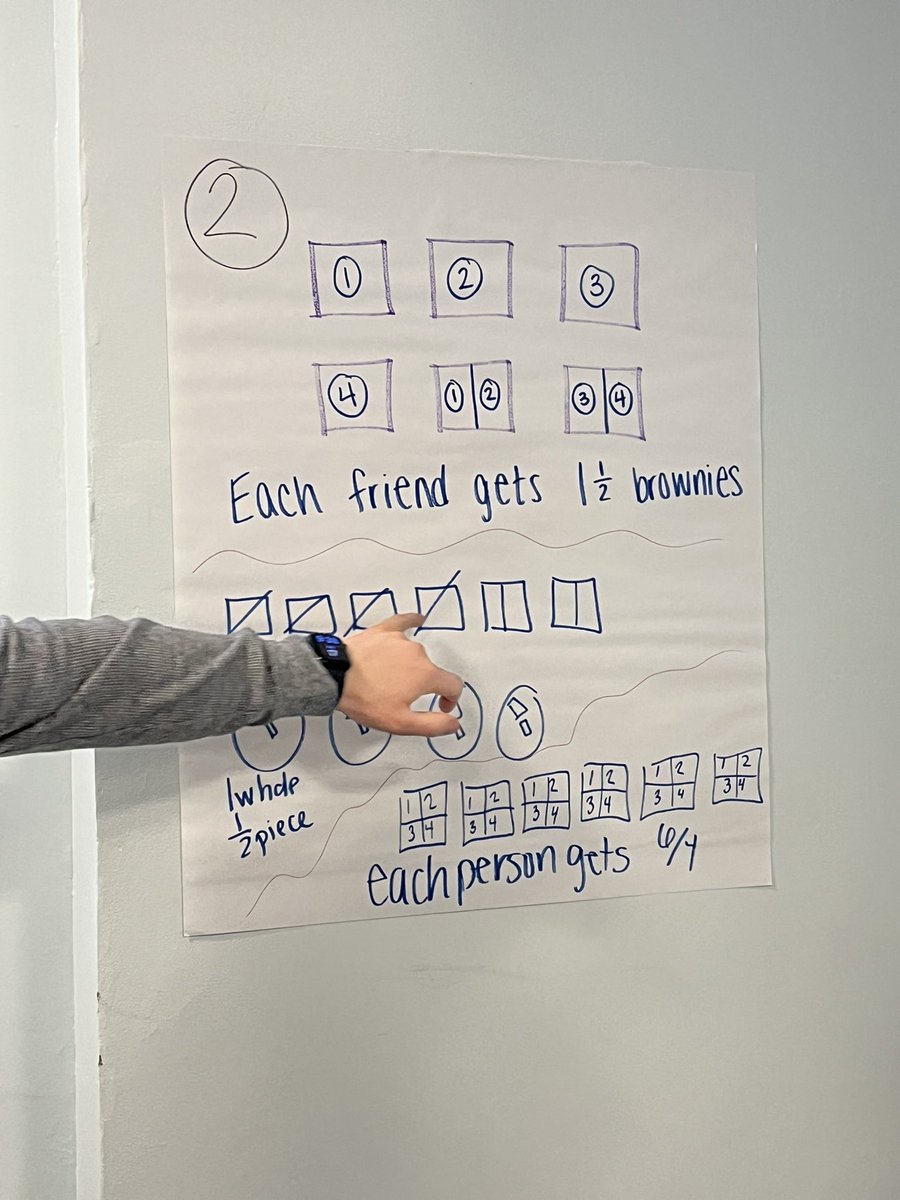 2
1 2 3
4 1 2 3 4
Each friend gets 1 1/2 brownies
1 whole
1/2 piece
1 2 1 2 1 2 1 2 1 2 1 2
3 4 3 4 3 4 3 4 3 4 3 4
each person gets 6/4